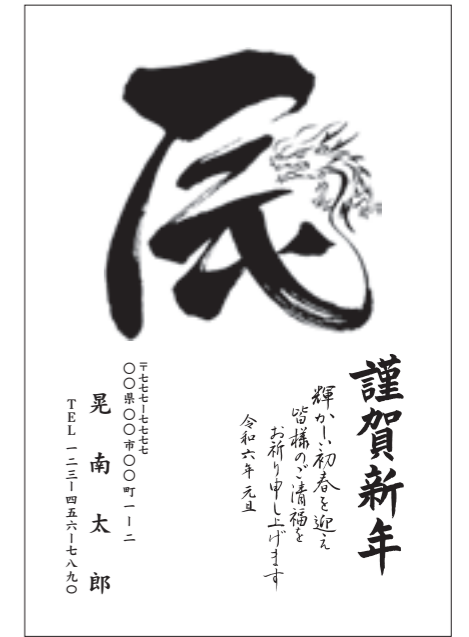 辰
謹賀新年
輝かしい初春を迎え
皆様のご清福を
お祈り申し上げます
令和六年 元旦
〒七七七ー七七七七
〇〇県〇〇市〇〇町一ー二
晃南太郎
TEL 一二三ー四五六ー七八九〇